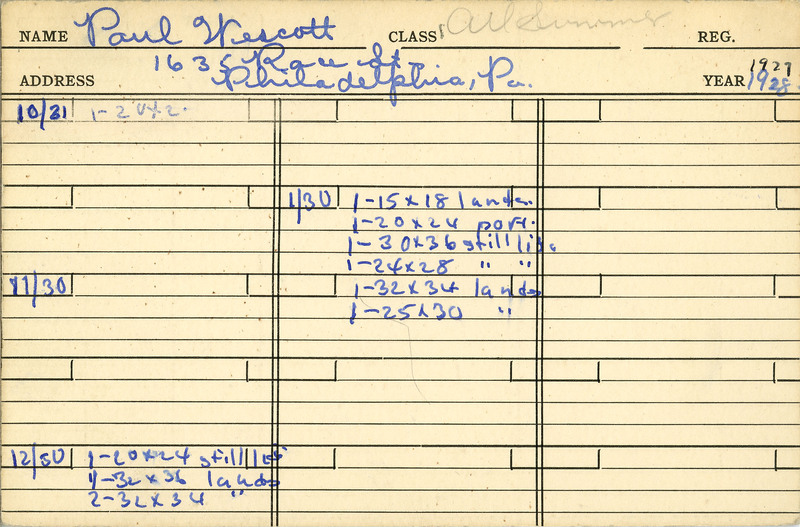 NAME Paul Wescott CLASS All Summer REG.
1635 Race St. 1927
ADDRESS Philadelphia, Pa. YEAR 1928
10/31 1-20x2
1/30 1-15x18 lands.
1-20x24 port.
1-30x36 still life.
1-24x28 " "
11/30 1-32x34 lands
1-25x30 "
12/30 1-20x24 still life
1-32x36 lands
2-32x34 "